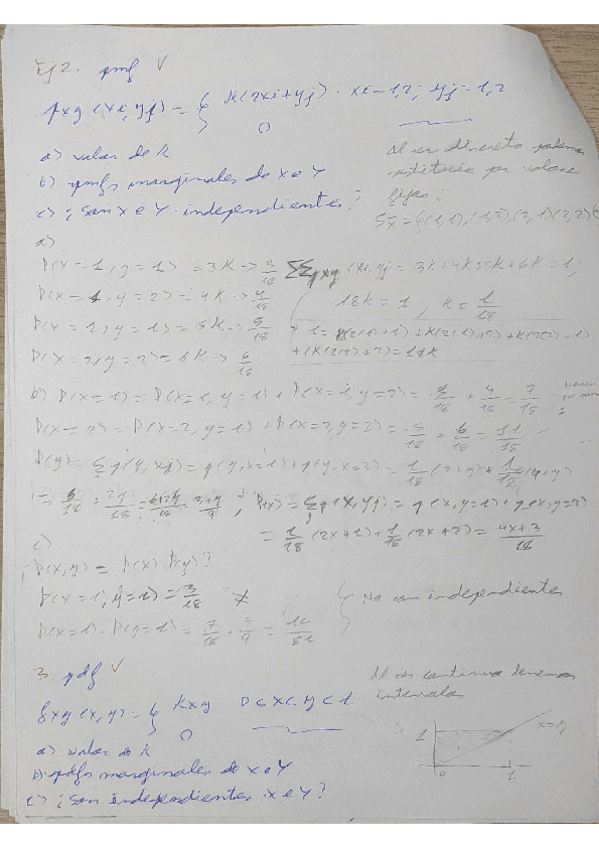 Ej 2. pmf V
pxy (xi, yj) = { K(2xi+yj) · xi=1,2; yj=1,2
0
a) valor de k
b) pmfs marginales de X e Y
c) ¿son X e Y independientes?
Al ser discreto podemos
sustituir por valores
fijos:
Sx = {(1,1), (1,2), (2,1), (2,2)}
a)
P(X=1, y=1) = 3K -> 3/18
P(X=1, y=2) = 4K -> 4/18
P(X=2, y=1) = 5K -> 5/18
P(X=2, y=2) = 6K -> 6/18
ΣΣ pxy (xi, yj = 3K+4K+5K+6K = 1;
18K = 1, K = 1/18
1 = K(2(1)+1)+K(2(1)+2)+K(2(2)+1)
+(K(2(2)+2) = 18K
b) P(X=1) = P(X=1, y=1) + P(X=1, y=2) = 3/18 + 4/18 = 7/18
P(X=2) = P(X=2, y=1) + P(X=2, y=2) = 5/18 + 6/18 = 11/18
P(y) = Σ p(y, xj) = p(y, x=1) + p(y, x=2) = 1/18 (2+y) + 1/18 (4+y)
= 6/18 + 2y/18 = 6+2y/18 = 3+y/9 ; P(x) = Σ p(x, yj) = p(x, y=1) + p(x, y=2)
= 1/18 (2x+1) + 1/18 (2x+2) = 4x+3/18
c)
¿P(x,y) = P(x) · P(y)?
P(X=1, y=1) = 3/18 ≠
P(X=1) · P(y=1) = 7/18 · 4/9 = 14/81
No son independientes
3. pdf V
fxy (x, y) = { Kxy 0<x<y<1
0
a) valor de k
b) pdfs marginales de X e Y
c) ¿son independientes X e Y?
Al ser continua tenemos
intervalos
x=y
1
0 1